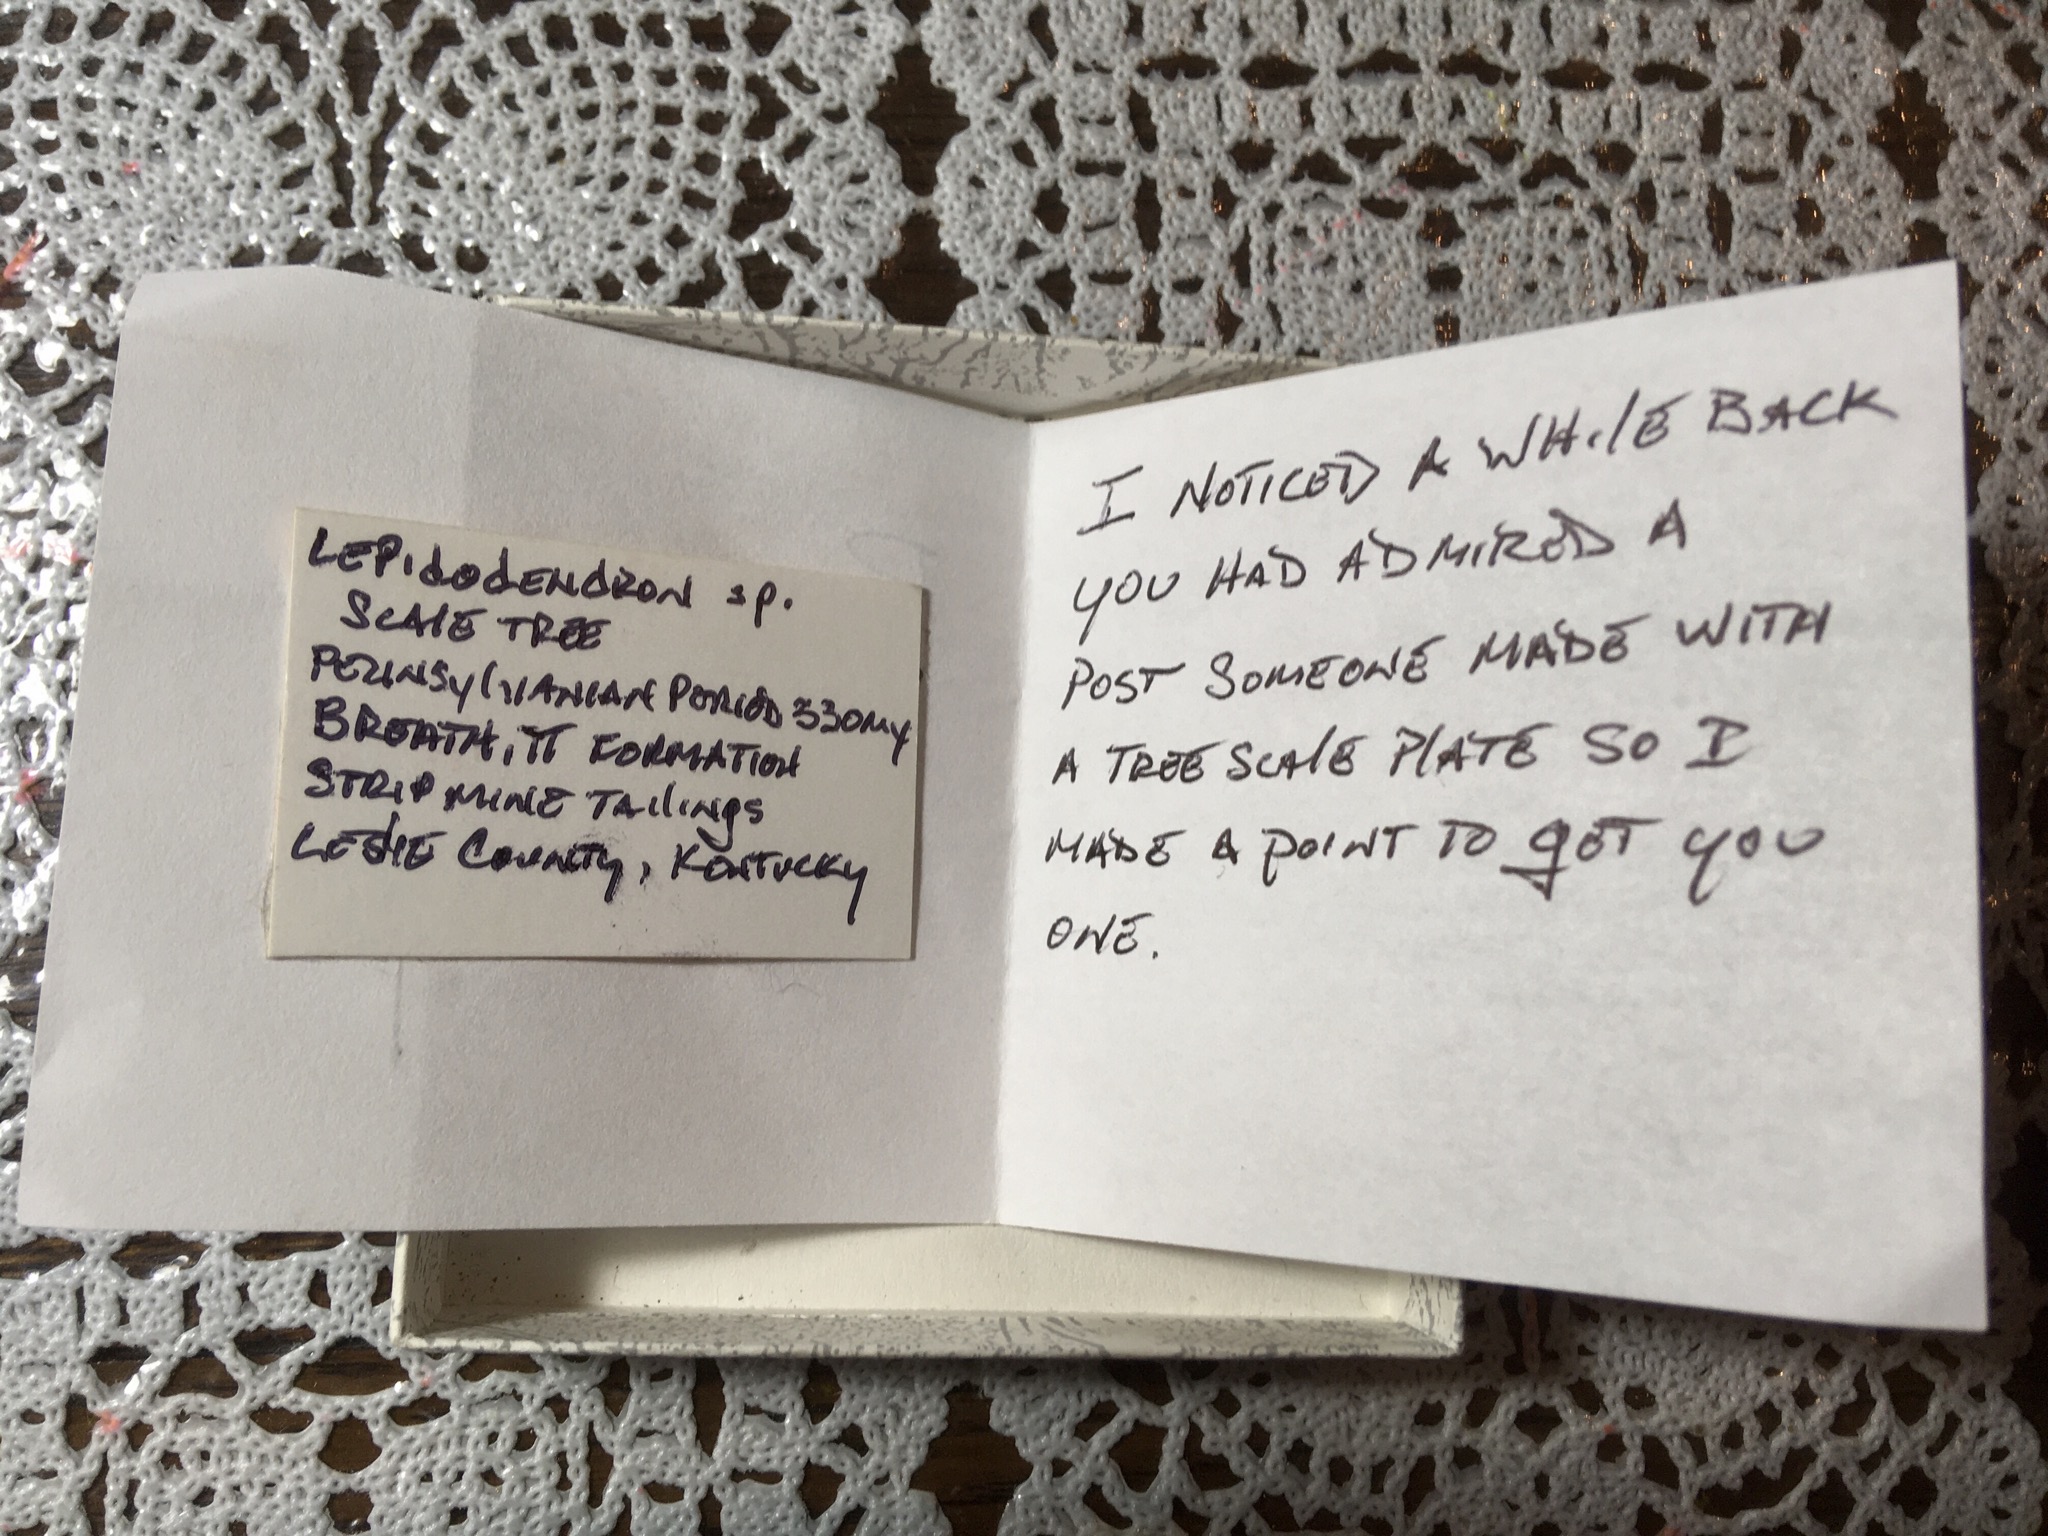 LEPIdOdENdRON sp.
SCAlE TREE
PENNSylVANIAN PERIOD 330MY
BREATHITT FORMATION
STRIP MINE TAIlINgS
LESlIE COUNTy, KENTUCKy
I NOTICED A WHIlE BACK
yOU HAD ADMIRED A
POST SOMEONE MADE WITH
A TREE SCAlE PlATE SO I
MADE A POINT TO gET yOU
ONE.